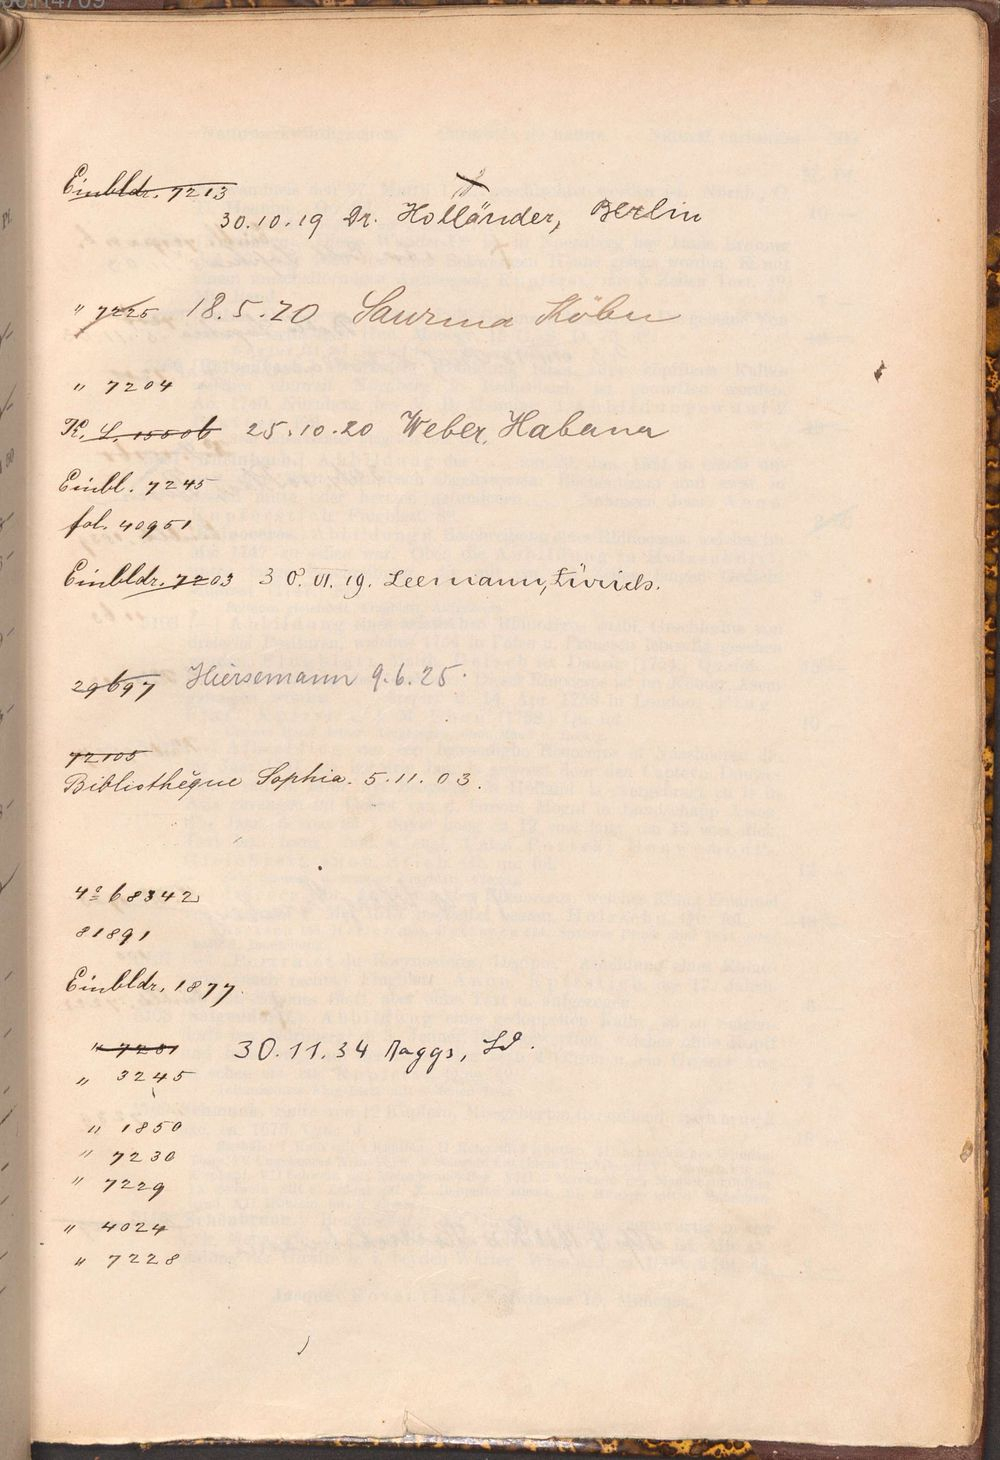 Einbldr. 7213
30.10.19 Dr. Holländer, Berlin
" 7225 18.5.20 Saurma Köln
" 7204
25.10.20 Weber, Habana
Einbl. 7245
fol. 40951
Einbldr. 7203 30.VI.19. Leemann, Zürich.
29697 Hiersemann 9.6.25.
72105
Bibliothèque Sophia. 5.11.03.
4º 68342
81891
Einbldr. 1877.
" 7231 30.11.34 Maggs, Ld.
" 3245
" 1850
" 7230
" 7229
" 4024
" 7228